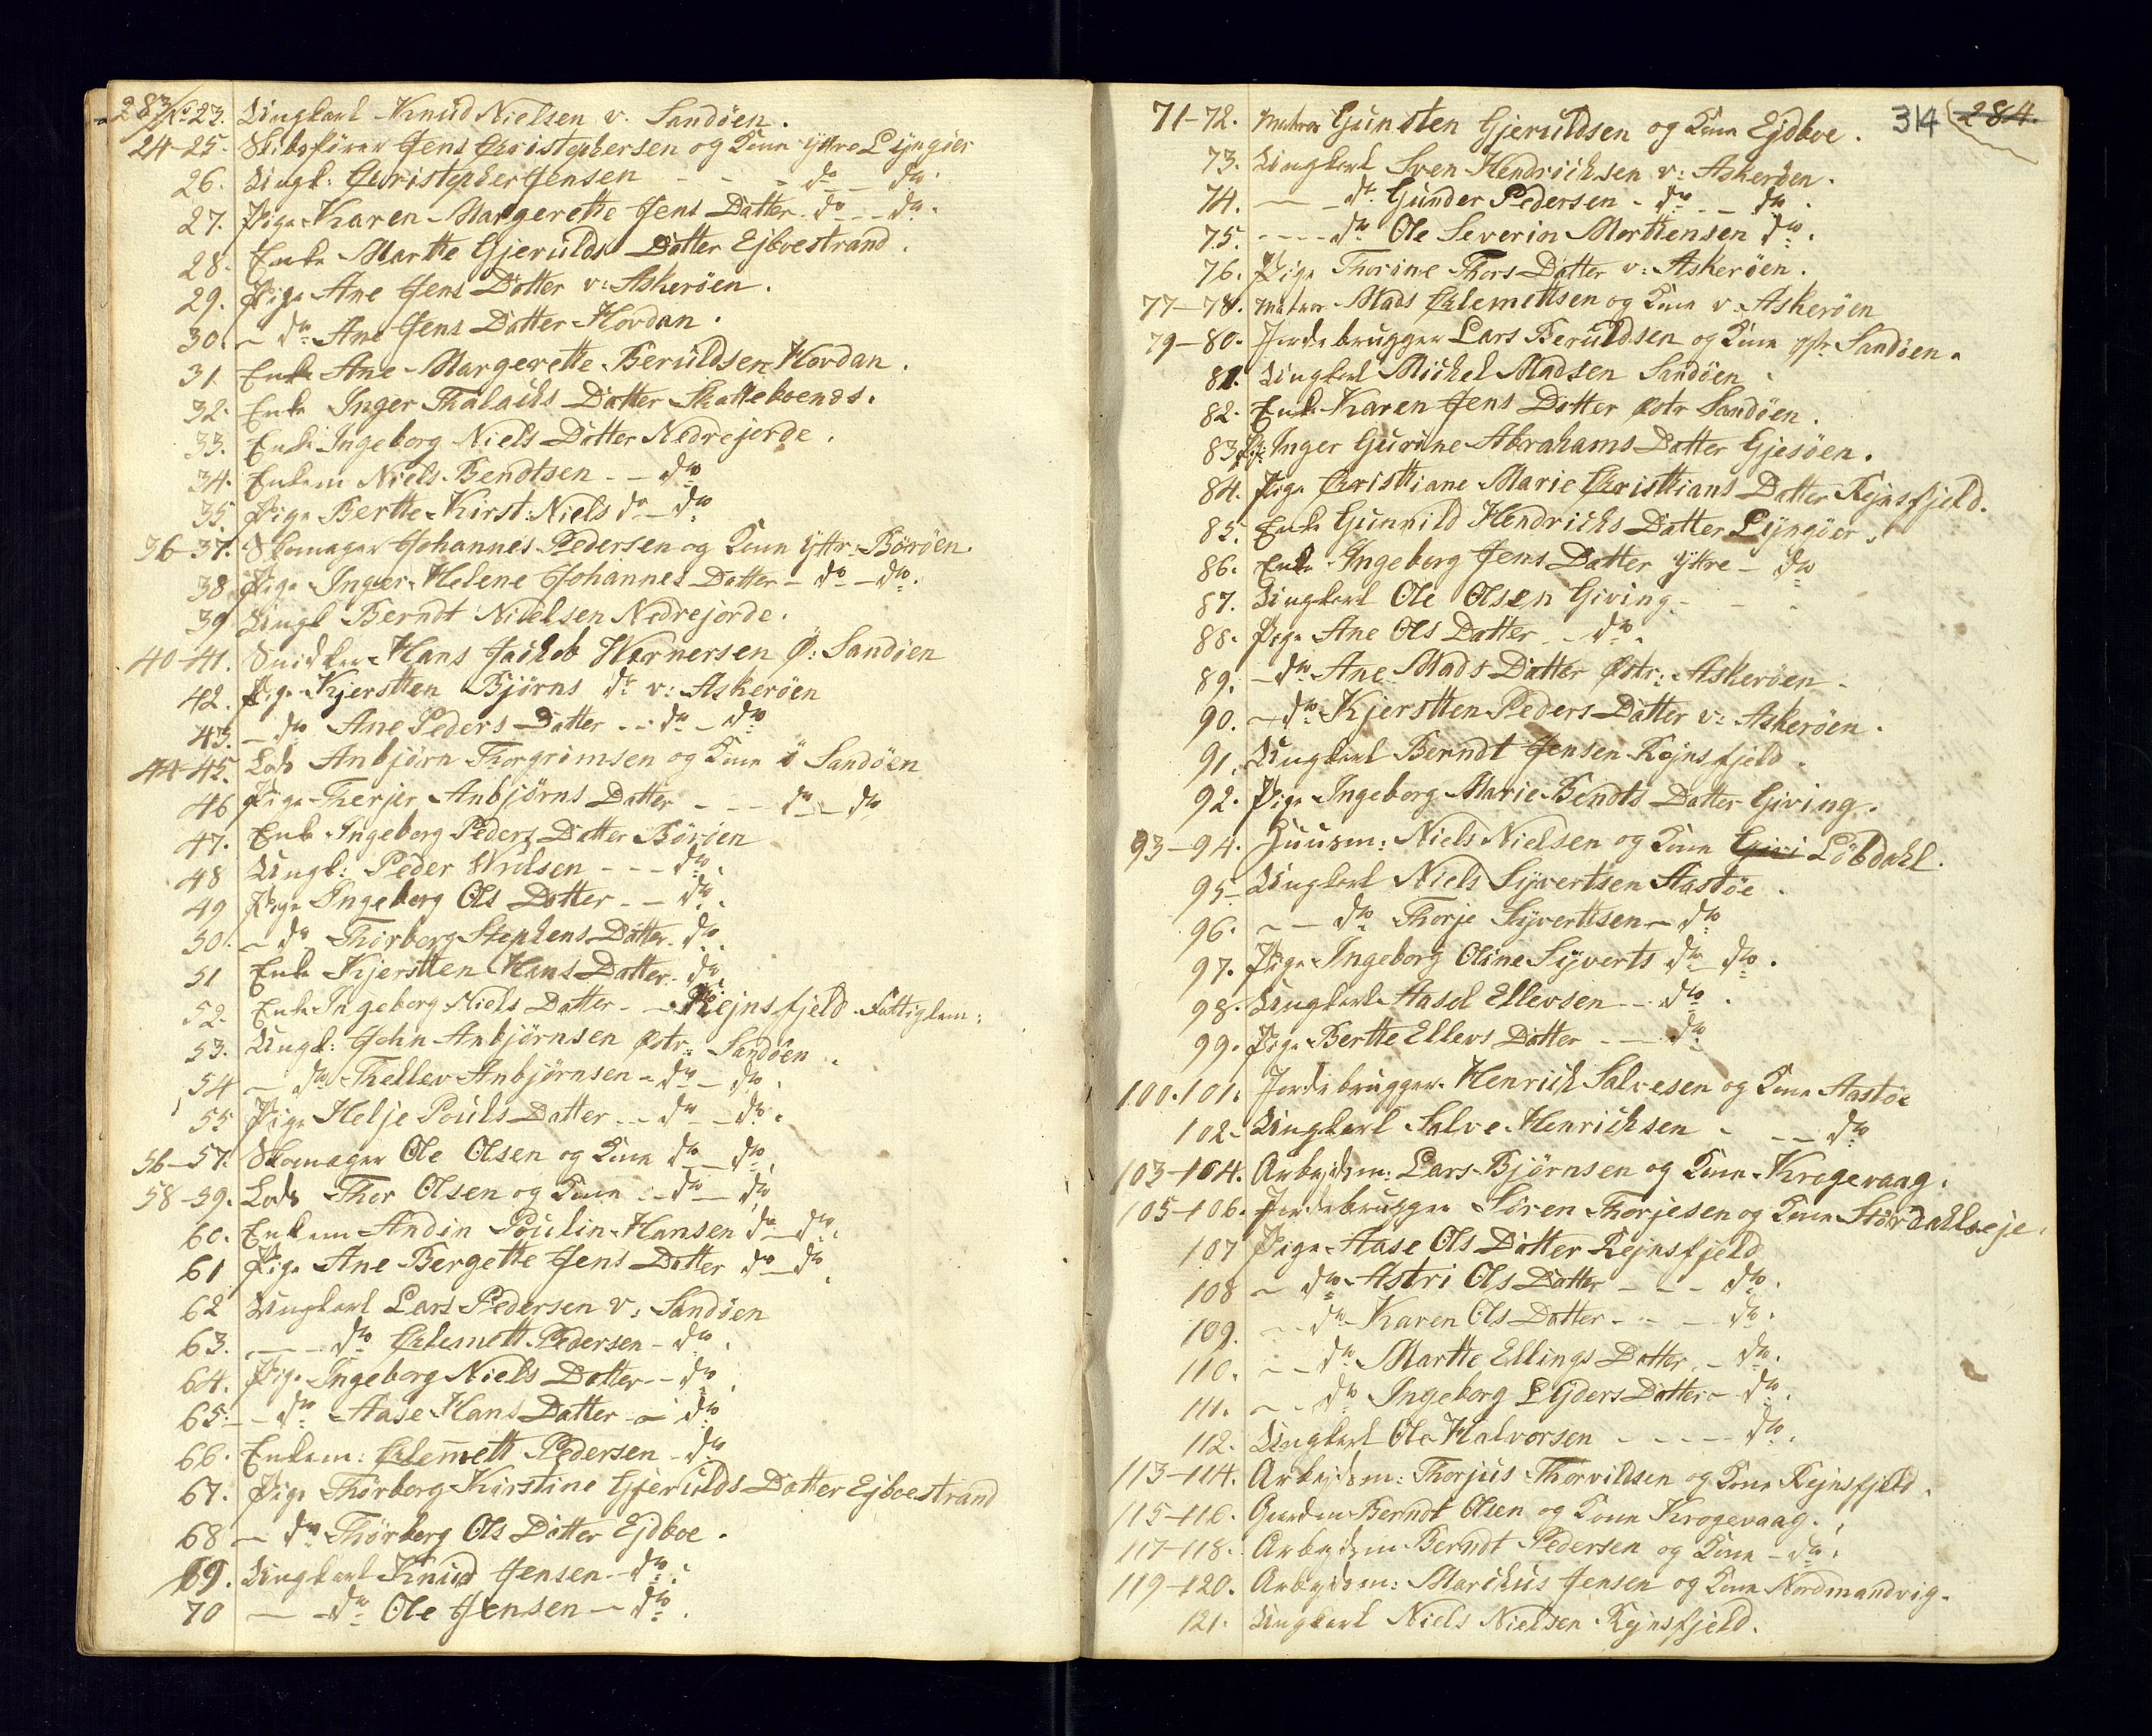 283/ No 23. Ungkarl Knud Nielsen v. Sandöen.
24-25. Skibsförer Jens Christephersen og Kone Yttre Lyngöer
26. Ungk: Christepher Jensen - - - do - - do.
27. Pige Karen Margerethe Jens Datter do - - do.
28. Enke Marthe Gjerulds Datter Ejboestrand.
29. Pige Ane Jens Datter v: Askeröen.
30. - do Ane Jens Datter Hovdan.
31 Enke Ane Margerette Beruldsen Hovdan.
32. Enke Inger Thalachs Datter Skatteboends.
33. Enke Ingeborg Niels Datter Nedrejorde.
34. Enkem Niels Bendtsen - - do
35. Pige Berthe Kirst: Niels do - do
36-37. Skomager Johannes Pedersen og Kone Yttr: Böröen
38 Pige Inger Helene Johannes Datter - do - do.
39 Ungk Berndt Nielsen Nedrejorde.
40-41. Snidker Hans Jachob Wernersen Ö: Sandöen
42. Pige Kjerstten Björns do v: Askeröen
43. - do Ane Peders Datter - - do - do
44-45. Lods Anbjörn Thorgrimsen og Kone ö Sandöen
46 Pige Therjer Anbjörns Datter - - - do - do
47. Enke Ingeborg Peders Datter Böröen
48 Ungk: Peder Wrolsen - - - do.
49 Pige Ingeborg Ols Datter - - do.
50. - do Thorborg Stephens Datter do.
51 Enke Kjerstten Hans Datter do.
52. Enke Ingeborg Niels Datter - - Rejnsfjeld Fattiglem:
53. Ungk: John Anbjörnsen östr: Sandöen.
54 - do Thellev Anbjörnsen - do - do.
55 Pige Helje Pouls Datter - - do - - do.
56-57. Skomager Ole Olsen og Kone do - do.
58-59. Lods Thor Olsen og Kone - - do - do
60. Enkem Andin Poulin Hansen do - do.
61 Pige Ane Bergette Jens Datter do - do.
62 Ungkarl Lars Pedersen v: Sandöen
63. - - - do Chlemett Pedersen - do.
64. Pige Ingeborg Niels Datter - - do.
65. - do Aase Hans Datter - do.
66. Enkem: Chlemett Pedersen - do
67. Pige Thorborg Kirstine Gjerulds Datter Ejboestrand
68 - do Thörborg Ols Datter Ejdboe.
69. Ungkarl Knud Jensen - do.
70 - - do Ole Jensen - do.
314 284.
71-72. Matros Gunsten Gjeruldsen og Kone Ejdboe.
73. Ungkarl Sven Hendrichsen v: Askeröen.
74. - - do Gunder Pedersen - do - - do.
75. - - - - do Ole Severin Morttensen do.
76. Pige Thorine Thors Datter v: Askeröen.
77-78. Matros Mads Chlemettsen og Kone v Askeröen
79-80. Jordebrugger Lars Beruldsen og Kone östr Sandöen.
81. Ungkarl Michel Madsen Sandöen
82. Enke Karen Jens Datter östr Sandöen.
83 Pig: Inger Gurine Abrahams Datter Gjesöen.
84. Pige Christtiane Marie Christtians Datter Rejnsfjeld.
85. Enke Gunnild Hendrichs Datter Lyngöer.
86. Enke Ingeborg Jens Datter Yttre - do
87. Ungkarl Ole Olsen Giving -
88. Pige Ane Ols Datter - - do.
89. - do Ane Mads Datter östr: Askeröen -
90. - do Kjerstten Peders Datter v: Askeröen.
91. Ungkarl Berndt Jensen Rejnsfjeld.
92. Pige Ingeborg Marie Bendts Datter Giving.
93-94. Huusm: Niels Nielsen og Kone Givi Löbdahl.
95- Ungkarl Niels Syvertsen Aastöe.
96. - - do Thorje Syverttsen - do
97. Pige Ingeborg Oline Syverts do - do.
98. Ungkarl Aasel Ellevsen - - do.
99. Pige Berthe Ellevs Datter - - do
100.101. Jordebrugger Henrich Salvesen og Kone Aastöe
102- Ungkarl Salve Henrichsen - - - do
103-104. Arbejdsm: Lars Björnsen og Kone Krogevaag.
105-106. Jordebrugger Sören Thorjesen og Kone Stördahlseje.
107 Pige Aase Ols Datter Rejnsfjeld
108 - do Astri Ols Datter - - - do.
109. - - do Karen Ols Datter - - - do.
110. - - do Marthe Ellings Datter - do.
111. - - do Ingeborg Lyders Datter - do.
112. Ungkarl Ole Halvorsen - - - - do.
113-114. Arbejdsm: Thorjus Thorvildsen og Kone Rejnsfjeld.
115-116. Gaardm Berndt Olsen og Kone Krogevaag.
117-118. Arbejdsm Berndt Pedersen og Kone - do.
119-120. Arbejdsm: Marchus Jensen og Kone Nordmandvig.
121. Ungkarl Niels Nielsen Rejnsfjeld.